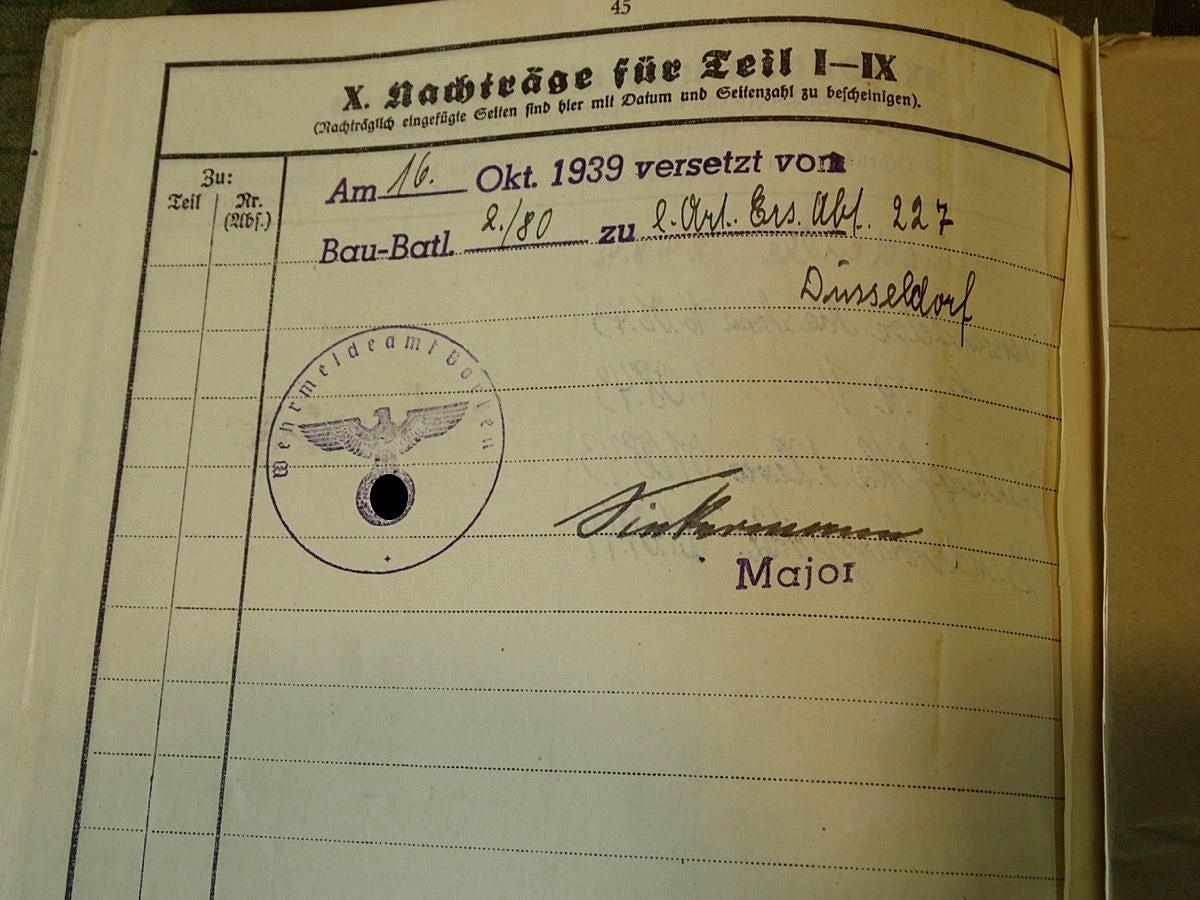 45
X. Nachträge für Teil I—IX
(Nachträglich eingefügte Seiten sind hier mit Datum und Seitenzahl zu bescheinigen).
Zu:
Teil Nr.
(Abs.)
Am 16. Okt. 1939 versetzt vom
Bau-Batl. 2./80 zu l. Art. Ers. Abt. 227
Düsseldorf
Wehrmeldeamt
Major